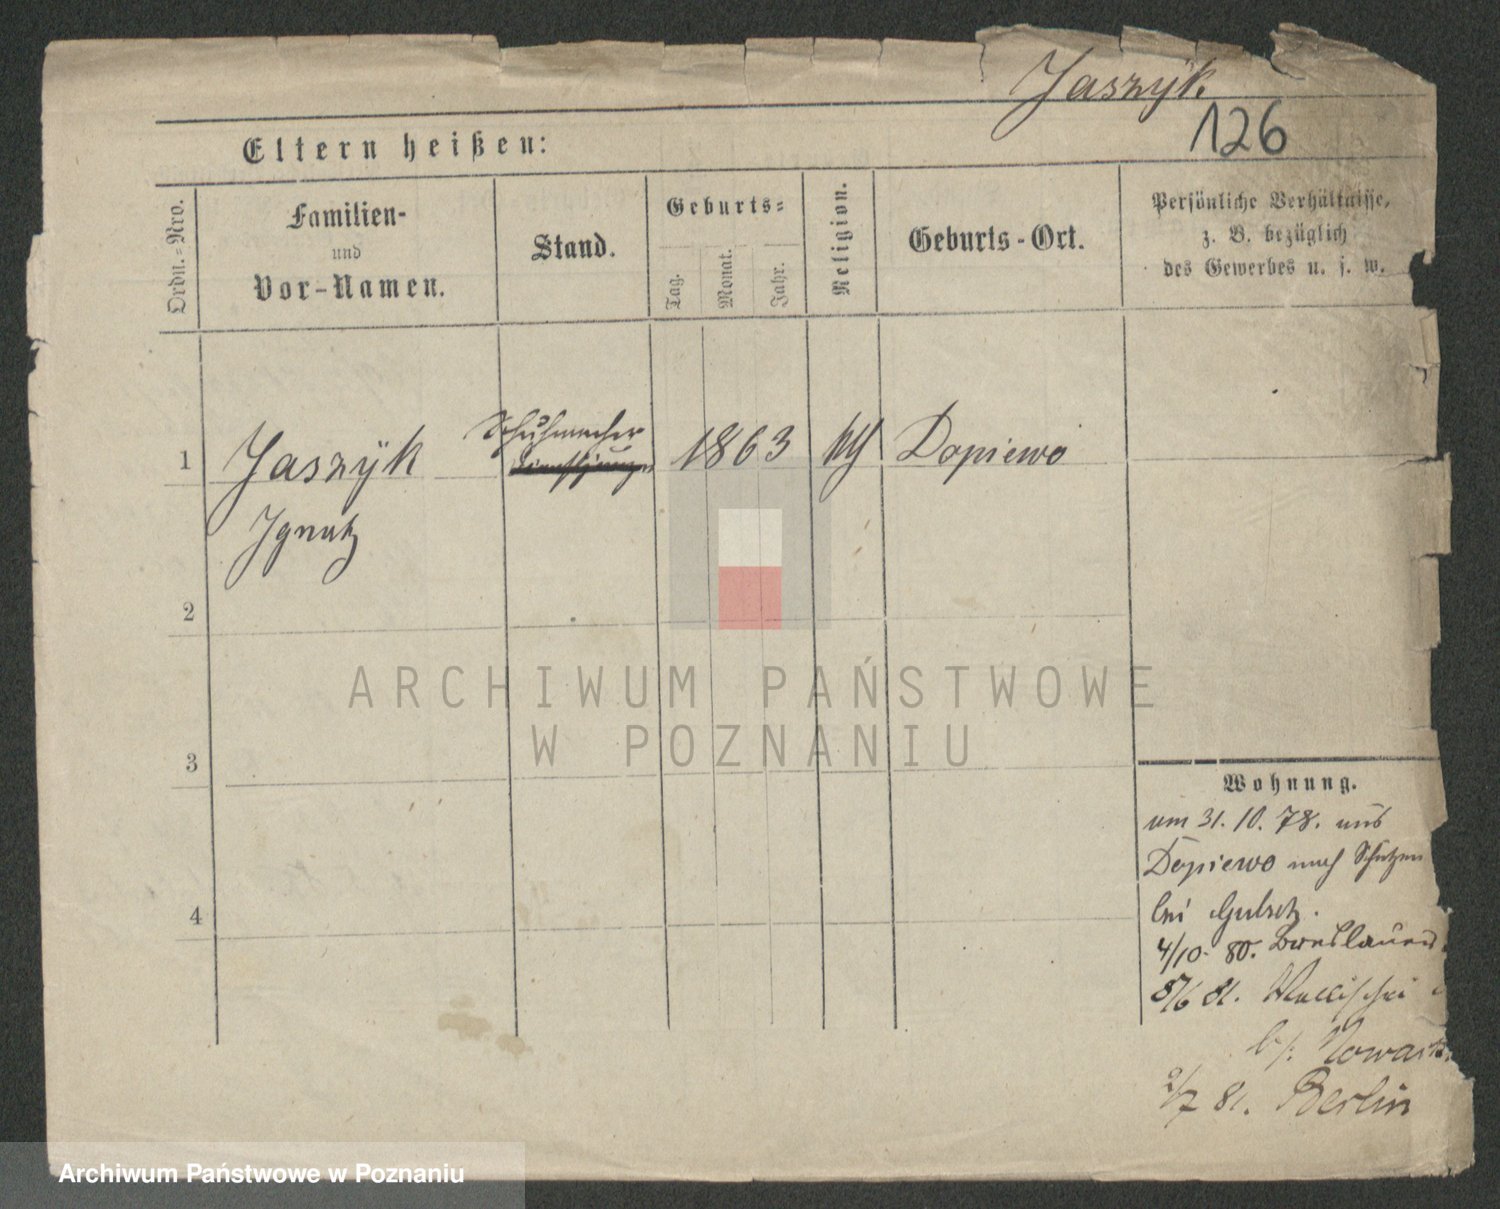 Jaszÿk
126
Eltern heißen:
Ordn.-Nro.
Familien-
und
Vor-Namen.
Stand.
Geburts-
Tag.
Monat.
Jahr.
Religion.
Geburts-Ort.
Persönliche Verhältnisse,
z. B. bezüglich
des Gewerbes u. s. w.
1
Jaszÿk
Ignatz
Schuhmacher
Dienstjunge
1863
kth
Dopiewo
2
3
4
Wohnung.
am 31. 10. 78. aus
Dopiewo nach Schützen
bei
4/10. 80. Breslauer
5/6 81. Wallischei
b/: Nowack
2/7 81. Berlin
ARCHIWUM PAŃSTWOWE
W POZNANIU
Archiwum Państwowe w Poznaniu